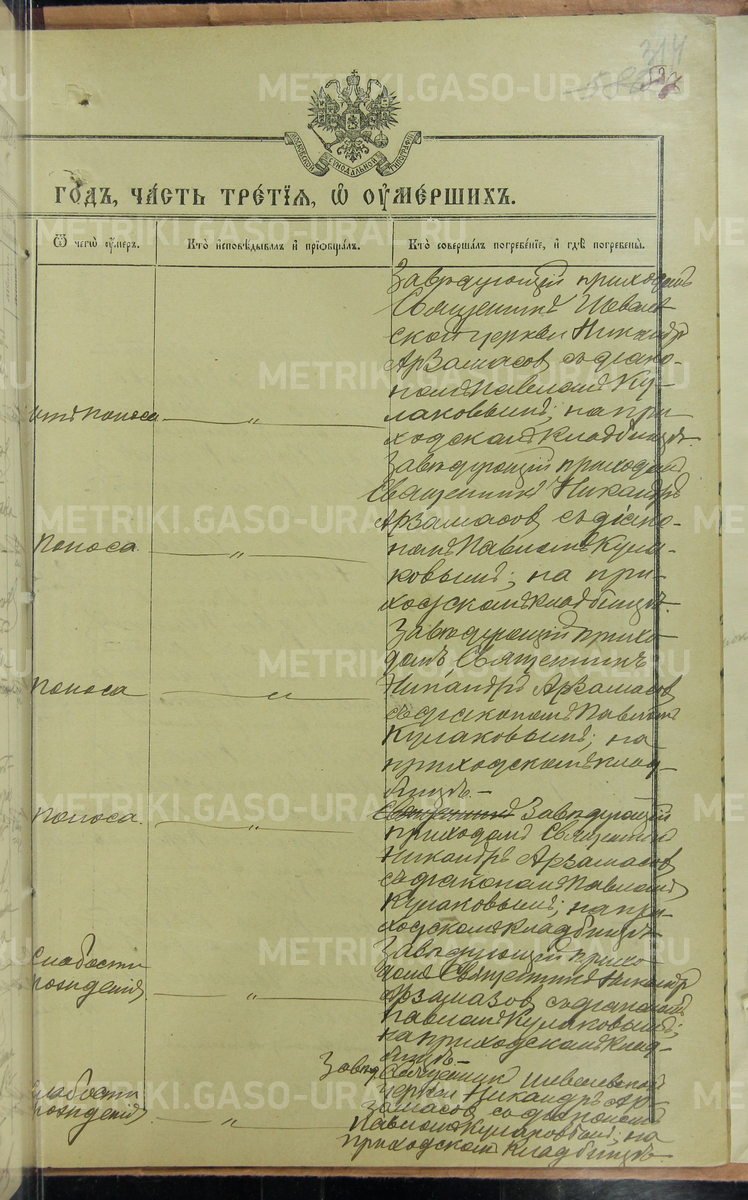 314
527
МОСКОВСКОЙ СѴНОДАЛЬНОЙ ТИПОГРАФІИ
ГОДЪ, ЧАСТЬ ТРЕТІЯ, Ѡ ОУМЕРШИХЪ.
Ѿ чегѡ оумеръ.
Кто исповѣдывалъ и пріобщалъ.
Кто совершалъ погребеніе, и гдѣ погребены.
отъ поноса
— „ —
Завѣдующій приходомъ
Священникъ Шевелев
ской церкви Никандръ
Арзамасов съ діако-
номъ Павломъ Ку-
лаковымъ; на при-
ходскомъ кладбищѣ.
поноса
— „ —
Завѣдующій приходомъ
Священникъ Никандръ
Арзамасов съ діако-
номъ Павломъ Кула-
ковымъ; на при-
ходскомъ кладбищѣ.
поноса
— „ —
Завѣдующій прихо-
домъ Священникъ
Никандръ Арзамасов
съ діакономъ Павломъ
Кулаковымъ; на
приходскомъ клад-
бищѣ.—
поноса.
— „ —
Священникъ Завѣдующій
приходомъ Священникъ
Никандръ Арзамасов
съ діакономъ Павломъ
Кулаковымъ; на при-
ходскомъ кладбищѣ
слабости
рожденія
— „ —
Завѣдующій прихо-
домъ Священникъ Никандр
Арзамазов съ діакономъ
Павломъ Кулаковымъ;
на приходскомъ клад-
бищѣ—
слабости
рожденія
— „ —
Завѣд. Священник Шевелевской
церкви Никандръ Ар-
замасов съ діакономъ
Павломъ Кулаковымъ; на
приходскомъ кладбищѣ.
METRIKI.GASO-URAL.RU